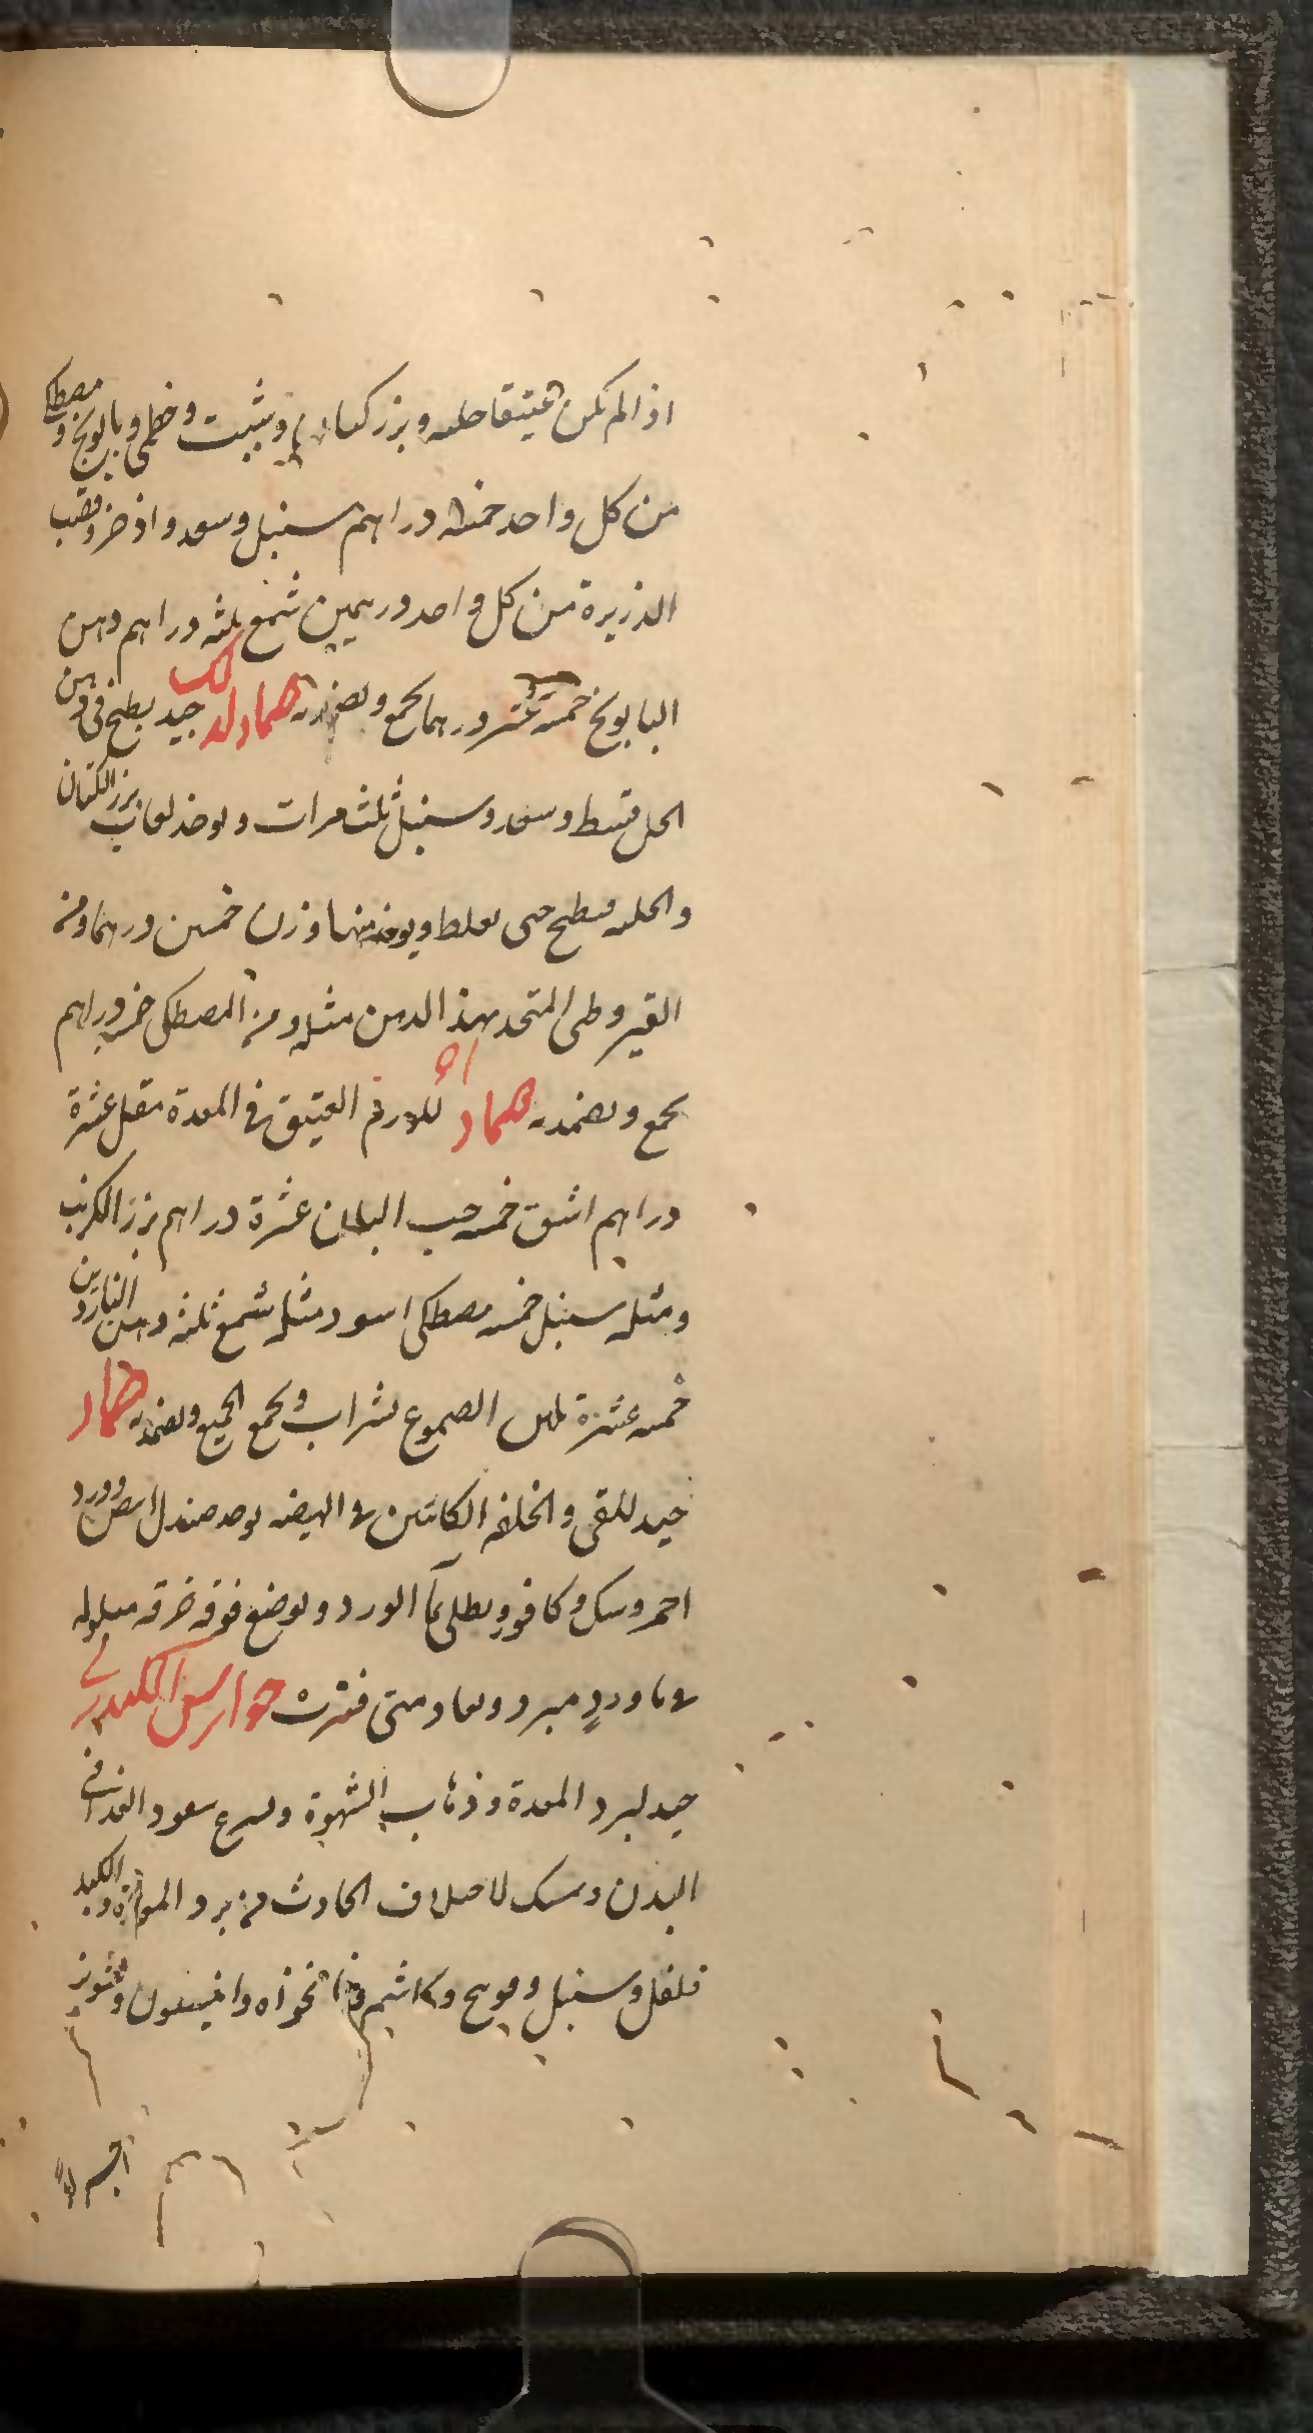 اذا لم تكن عتيقا حلبه وبزر كتان وشبت وخطمي وبابونج ومصطكى
من كل واحد خمسة دراهم سنبل وسعد واذخر وقصب
الذريرة من كل واحد درهمين شمع ثلثه دراهم دهن
البابونج خمسة عشر درهما يجمع ويضمد به ضماد لذلك جيد يطبخ في دهن
الحل قسط وسعد وسنبل ثلث مرات ويوخذ لعاب بزر الكتان
والحلبه فيطبخ حتى يغلظ ويوخذ منها وزن خمسين درهما ومن
القيروطي المتخذ بهذا الدهن مثله ومن المصطكى خمسه دراهم
يجمع ويضمد به ضماد اخر للورم العتيق في المعدة مقل عشرة
دراهم اشق خمسه حب البان عشرة دراهم بزر الكرنب
ومثله سنبل خمسه مصطكى اسود مثله شمع ثلثه دهن الناردين
خمسه عشرة الصموغ بشراب ويجمع الجميع ويضمد به ضماد
جيد للقي والخلفه الكائنين في الهيضه يوخذ صندل ابيض وورد
احمر وسك وكافور ويطلى بما الورد ويوضع فوقه خرقه مبلوله
في ماورد مبرد ويعاد متى فترت جوارشن الكندري
جيد لبرد المعدة وذهاب الشهوة ويسرع نفود الغذا في
البدن ويمسك لاختلاف الحادث من برد المعدة والكبد
فلفل وسنبل وفوتنج وكاشم ونانخواه وافيثمون وشونيز